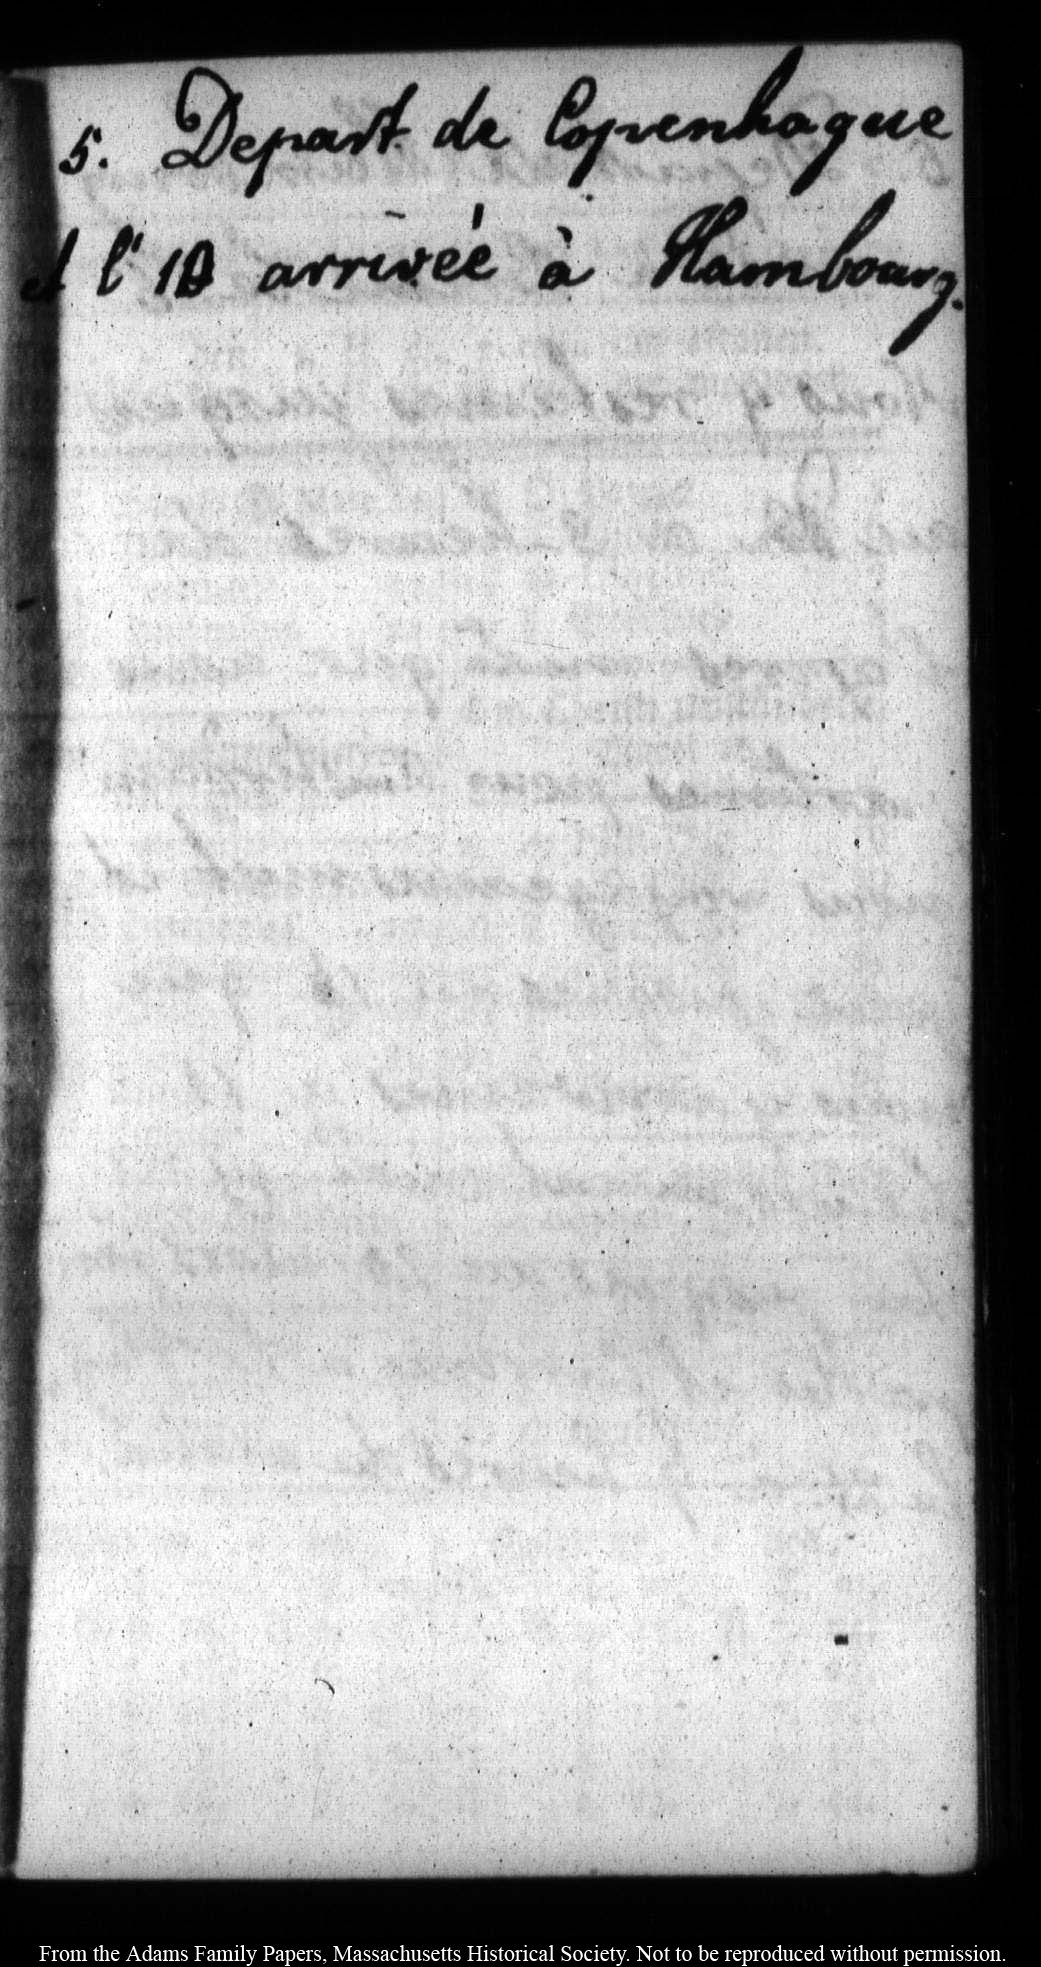 5. Depart de Copenhague
et l'10 arrivée à Hambourg.
From the Adams Family Papers, Massachusetts Historical Society. Not to be reproduced without permission.